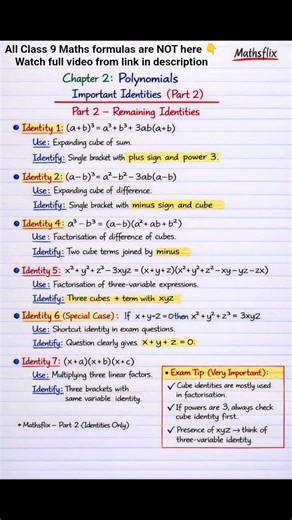 All Class 9 Maths formulas are NOT here 👇
Watch full video from link in description
Mathsflix
Chapter 2: Polynomials
Important Identities (Part 2)
Part 2 – Remaining Identities
• Identity 1: (a+b)³ = a³+b³+3ab(a+b)
Use: Expanding cube of sum.
Identify: Single bracket with plus sign and power 3.
• Identity 2: (a−b)³ = a²−b²−3ab(a−b)
Use: Expanding cube of difference.
Identify: Single bracket with minus sign and cube
• Identity 4: a³−b³ = (a−b)(a²+ab+b²)
Use: Factorisation of difference of cubes.
Identify: Two cube terms joined by minus
• Identity 5: x³+y³+z³−3xyz = (x+y+z)(x²+y²+z²−xy−yz−zx)
Use: Factorisation of three-variable expressions.
Identify: Three cubes + term with xyz
• Identity 6 (Special Case): If x+y-2=0then x³+y²+z³=3xy2
Use: Shortcut identity in exam questions.
Identify: Question clearly gives x+y+z=0.
• Identity 7: (x+a)(x+b)(x+c)
Use: Multiplying three linear factors.
Identify: Three brackets with
same variable identity.
• Mathsflix – Part 2 (Identities Only)
• Exam Tip (Very Important):
✓ Cube identities are mostly used
in factorisation.
✓ If powers are 3, always check
cube identity first.
✓ Presence of xyz → think of
three-variable identity.